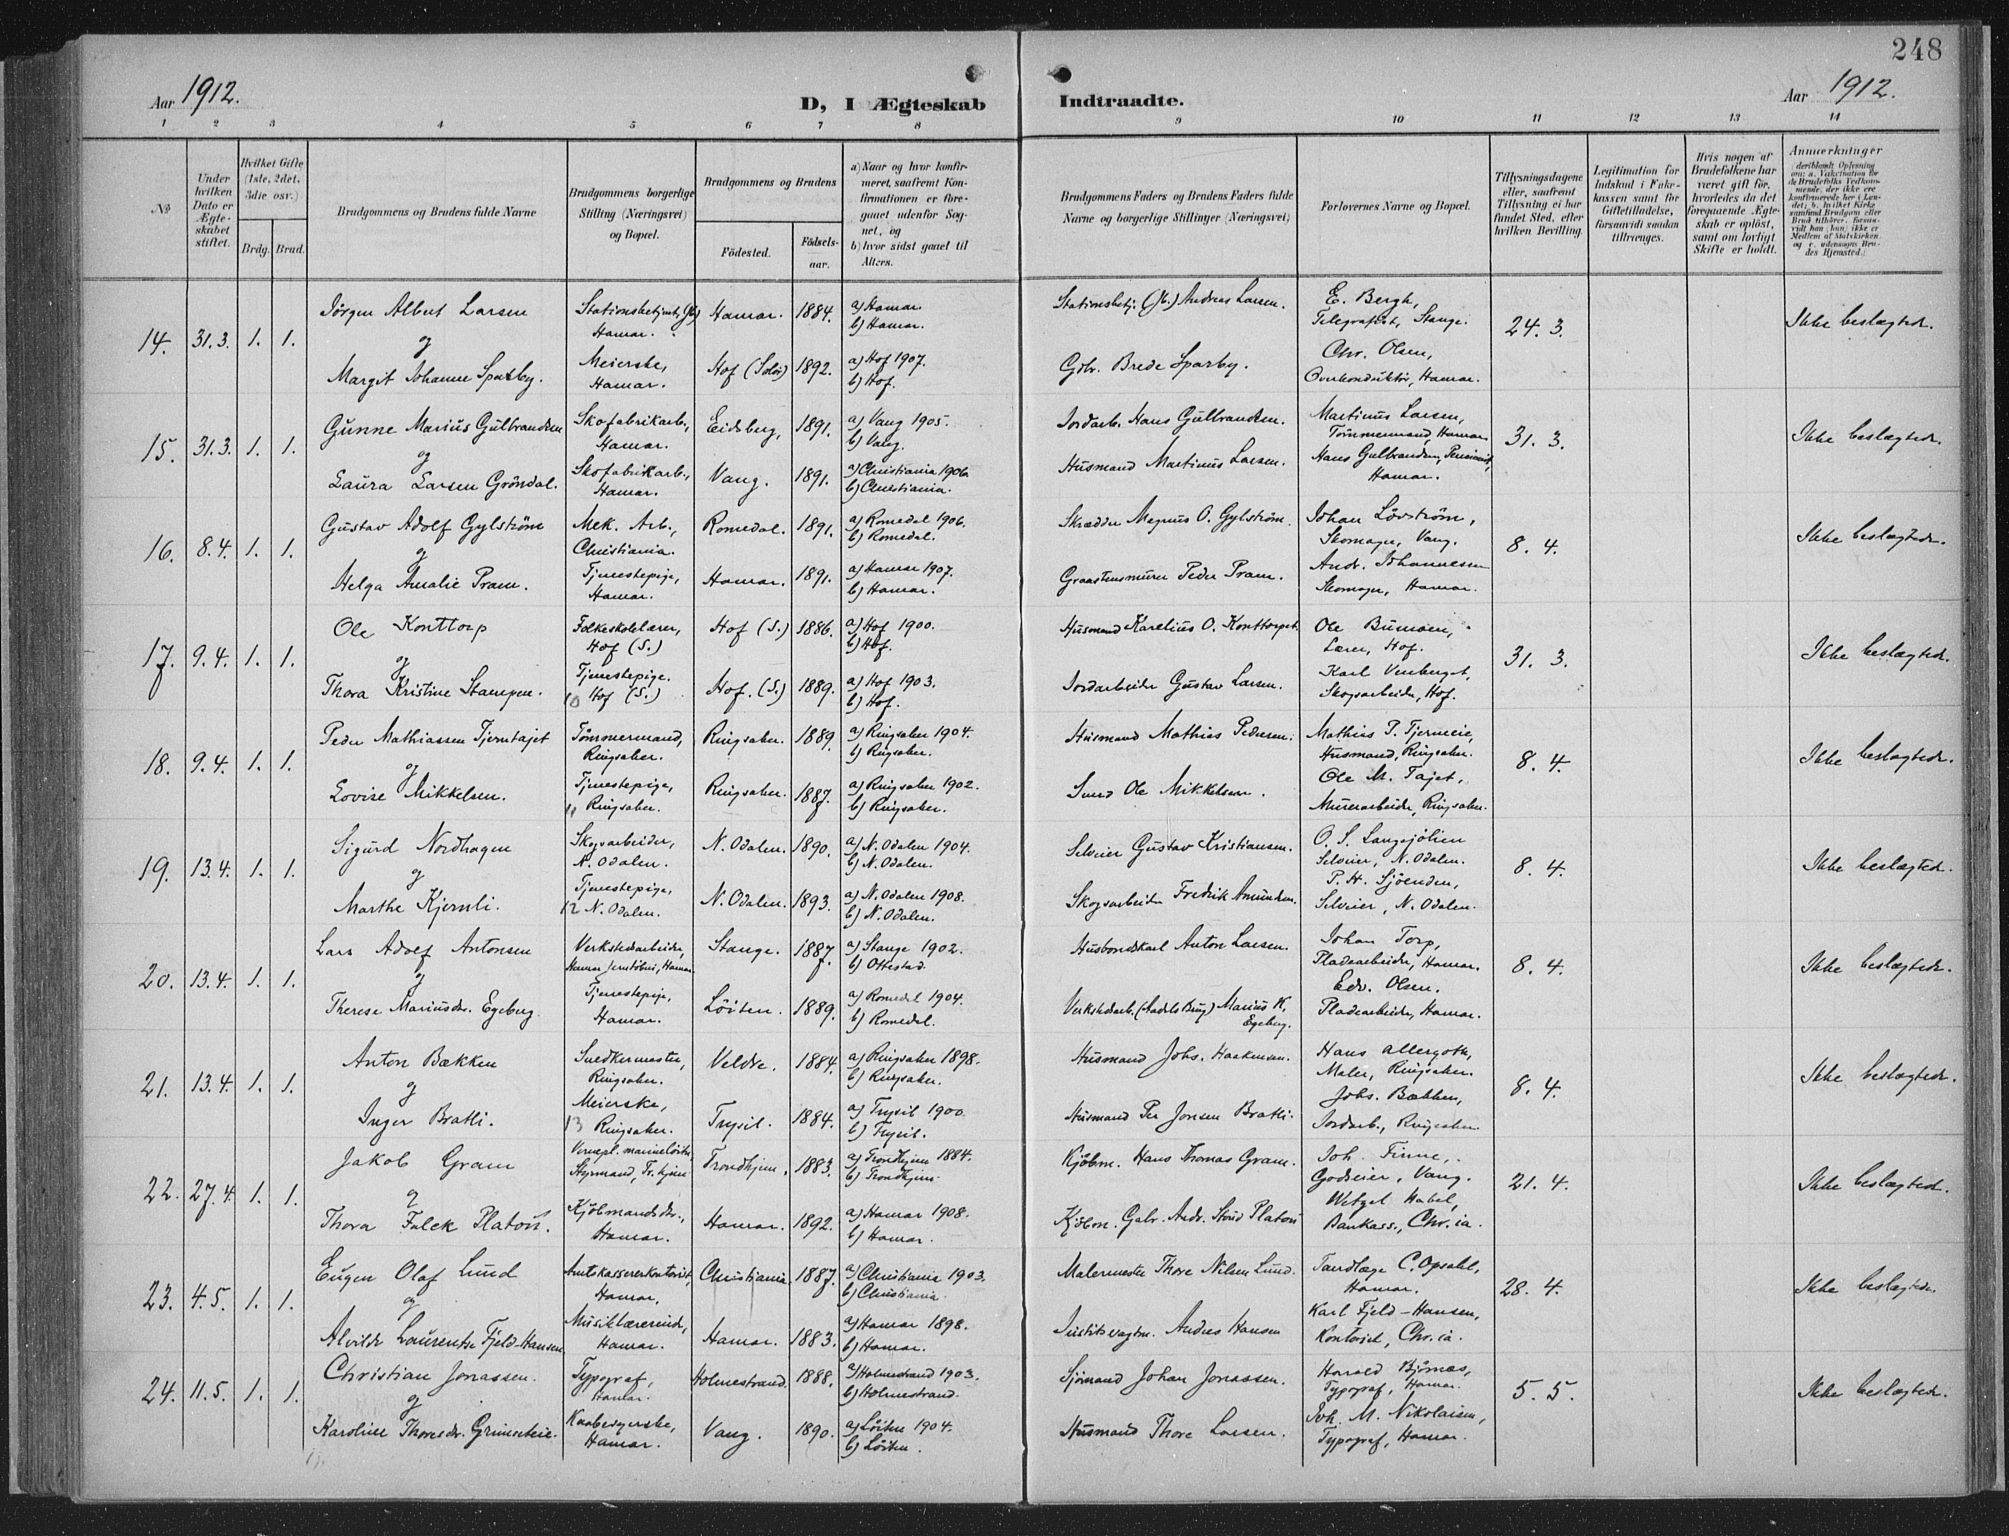 248
Aar 1912.
D, I Ægteskab Indtraadte.
Aar 1912.
1 2 3 4 5 6 7 8 9 10 11 12 13 14
№
Under hvilken Dato er Ægteskabet stiftet.
Hvilket Gifte (1ste, 2det, 3die osv.)
Brdg. Brud.
Brudgommens og Brudens fulde Navne
Brudgommens borgerlige Stilling (Næringsvei) og Bopæl.
Brudgommens og Brudens
Födested.
Födselsaar.
a) Naar og hvor konfirmeret, saafremt Konfirmationen er foregaaet udenfor Sognet, og
b) hvor sidst gaaet til Alters.
Brudgommens Faders og Brudens Faders fulde Navne og borgerlige Stillinger (Næringsvei)
Forlovernes Navne og Bopæl.
Tillysningsdagene eller, saafremt Tillysning ei har fundet Sted, efter hvilken Bevilling.
Legitimation for Indskud i Enkekassen samt for Giftetilladelse, forsaavidt saadan tiltrænges.
Hvis nogen af Brudefolkene har været gift för, hvorledes da det foregaaende Ægteskab er oplöst, samt om lovligt Skifte er holdt.
Anmærkninger
14. 31.3. 1. 1.
Jörgen Albert Larsen
og
Margit Johanne Sparby.
Hamar.
Meierske,
Hamar.
Hamar. 1884.
Hof (Solör) 1892.
a) Hamar.
b) Hamar.
a) Hof 1907.
b) Hof.
Stationsbetj. (Jb.) Andreas Larsen.
Gbr. Brede Sparby.
E. Bergh,
Telegrafist, Stange.
Chr. Olsen,
Overkonduktör, Hamar.
24. 3.
Ikke beslægtede.
15. 31.3. 1. 1.
Gunne Marius Gulbrandsen
og
Laura Larsen Gröndal.
Skofabrikarb.,
Hamar.
Skofabrikarb.,
Hamar.
Eidsberg, 1891.
Vang. 1891.
a) Vang 1905.
b) Vang.
a) Christiania 1906.
b) Christiania.
Jordarb. Hans Gulbrandsen.
Husmand Martinus Larsen.
Martinus Larsen,
Tömmermand, Hamar
Hans Gulbrandsen, Pensionist,
Hamar.
31. 3.
Ikke beslægtede.
16. 8.4. 1. 1.
Gustav Adolf Gylström
og
Helga Amalie Pram.
Mek. Arb.,
Christiania.
Tjenestepige,
Hamar.
Romedal. 1891.
Hamar. 1891.
a) Romedal 1906.
b) Romedal.
a) Hamar 1907.
b) Hamar.
Skrædder Magnus O. Gylström.
Graastensmurer Peder Pram.
Johan Lövström,
Skomager, Vang.
Andr. Johannessen
Skomager, Hamar.
8. 4.
Ikke beslægtede.
17. 9.4. 1. 1.
Ole Konttorp
og
Thora Kristine
Folkeskolelærer,
Hof (S.)
Tjenestepige.
10 Hof (S.)
Hof (S.) 1886.
Hof. (S.) 1889.
a) Hof 1900.
b) Hof.
a) Hof 1903.
b) Hof.
Husmand Karelius O. Konttorpet.
Jordarbeider Gustav Larsen.
Ole Bumoen,
Lærer, Hof.
Karl Venberget,
Skogsarbeider, Hof.
31. 3.
Ikke beslægtede.
18. 9.4. 1. 1.
Peder Mathiassen Tjerntajet
og
Lovise Mikkelsen.
Tömmermand,
Ringsaker.
Tjenestepige,
11 Ringsaker.
Ringsaker. 1889.
Ringsaker. 1887.
a) Ringsaker 1904.
b) Ringsaker.
a) Ringsaker 1902.
b) Ringsaker.
Husmand Mathias Pedersen.
Smed Ole Mikkelsen.
Mathias P. Tjerneie,
Husmand, Ringsaker.
Ole M. Tajet,
Murerarbeider, Ringsaker.
8. 4.
Ikke beslægtede.
19. 13.4. 1. 1.
Sigurd Nordhagen
og
Marthe Kjernli.
Skogsarbeider,
N. Odalen.
Tjenestepige,
12 N. Odalen.
N. Odalen. 1890.
N. Odalen. 1893.
a) N. Odalen 1904.
b) N. Odalen.
a) N. Odalen 1908.
b) N. Odalen.
Selveier Gustav Kristiansen.
Skogsarbeider Fredrik Amundsen.
O. S. Langsjölien
Selveier, N. Odalen.
P. H. Sjöenden,
Selveier, N. Odalen.
8. 4.
Ikke beslægted.
20. 13.4. 1. 1.
Lars Adolf Antonsen
og
Therese Mariusdr. Egeberg.
Verkstedarbeider,
Hamar Jernstöberi, Hamar
Tjenestepige,
Hamar.
Stange. 1887.
Löiten. 1889.
a) Stange 1902.
b) Ottestad.
a) Romedal 1904.
b) Romedal.
Husbondskarl Anton Larsen.
Verkstedarb. (Aadals Brug) Marius K.
Egeberg.
Johan Torp,
Pladearbeider, Hamar.
Edv. Olsen.
Pladearbeider, Hamar.
8. 4.
Ikke beslægtede.
21. 13.4. 1. 1.
Anton Bækken
og
Inger Bratli.
Snedkermester,
Ringsaker.
Meierske,
13 Ringsaker.
Veldre. 1884.
Trysil. 1884.
a) Ringsaker 1898.
b) Ringsaker.
a) Trysil 1900.
b) Trysil.
Husmand Johs. Haakensen.
Husmand Per Jonsen Bratli.
Hans Allergoth,
Maler, Ringsaker.
Johs. Bækken,
Jordarb., Ringsaker.
8. 4.
Ikke beslægtede.
22. 27.4. 1. 1.
Jakob Gram
og
Thora Falck Platoú.
Styrmand, Tr.hjem
Kjöbmandsdr.,
Hamar.
Trondhjem. 1883.
Hamar. 1892.
a) Trondhjem 1884.
b) Trondhjem.
a) Hamar 1908.
b) Hamar.
Kjöbm. Hans Thomas Gram.
Kjöbm. Gabr. Andr. Stoud Platoú
Joh. Finne,
Godseier, Vang.
Wetzel Habel,
Bankass., Chr.ia.
21. 4.
Ikke beslægted.
23. 4.5. 1. 1.
Eugen Olaf Lund
og
Alvilde Laurentze Fjeld-Hansen
Amtskassererkontorist,
Hamar.
Musiklærerinde,
Hamar.
Christiania. 1887.
Hamar. 1883.
a) Christiania 1903.
b) Christiania.
a) Hamar 1898.
b) Hamar.
Malermester Thore Nilsen Lund.
Andres Hansen
Tandlæge C. Opsahl,
Hamar.
Karl Fjeld-Hansen,
Kontorist, Chr.ia.
28. 4.
Ikke beslægtede.
24. 11.5. 1. 1.
Christian Jonassen.
og
Karoline Thoresdr. Grimseteie.
Typograf,
Hamar.
Kaabesyerske,
Hamar.
Holmestrand. 1888.
Vang. 1890.
a) Holmestrand 1903.
b) Holmestrand.
a) Löiten 1904.
b) Löiten.
Sjömand Johan Jonassen.
Husmand Thore Larsen.
Harald Björnæs,
Typograf, Hamar.
Joh. M. Nikolaisen,
Typograf, Hamar.
5. 5.
Ikke beslægtede.